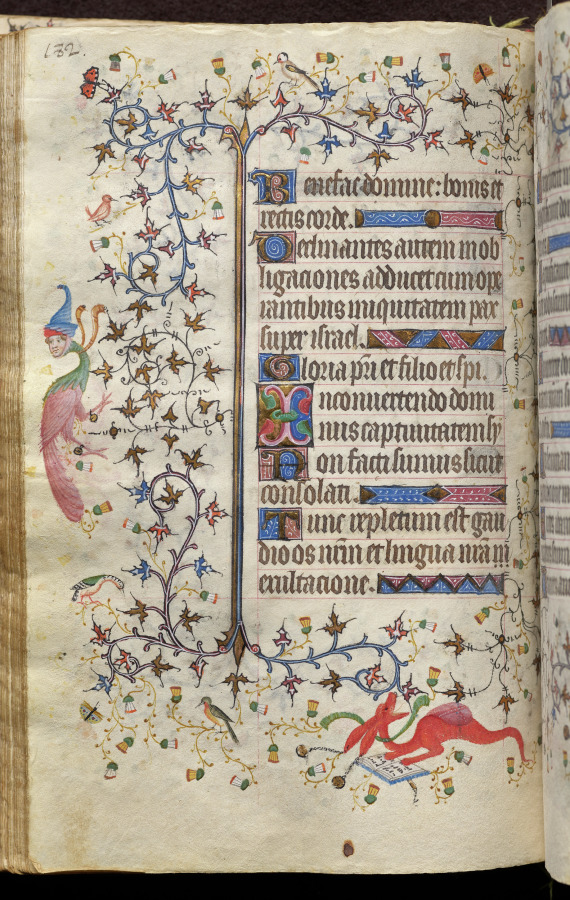 132.
Benefac domine: bonis et
rectis corde.
Declinantes autem in ob
ligaciones adducet cum ope
rantibus iniquitatem pax
super israel.
Gloria pr̄i et filio et spi.
In conuertendo domi
nus captiuitatem sy
on facti sumus sicut
consolati.
Tunc repletum est gau
dio os nr̄m et lingua nr̄a in
exultacione.